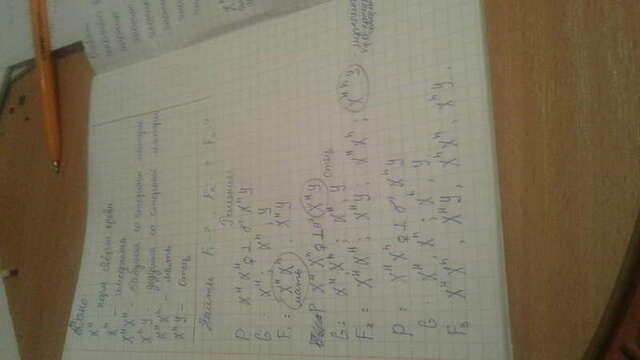 Дано:
X^H - норм свёрт крови
X^h - гемофилия
X^H X^H - бабушка со стороны матери
X^h Y - дедушка со стороны матери
X^H X^h - мать
X^H Y - Отец
Найти F₁-? F₂-? F₃-?
Решение:
P X^H X^H ♀ ⊥ ♂ X^h Y
G: X^H ; X^h , Y
F₁: X^H X^h , X^H Y
мать
P X^H X^h ♀ ⊥ ♂ X^H Y
отец
G: X^H, X^h ; X^H, Y
F₂: X^H X^H ; X^H Y ; X^H X^h ; X^h Y -
P: X^H X^h ♀ ⊥ ♂ X^h Y
G: X^H, X^h ; X^h, Y
F₃ X^H X^h , X^H Y, X^h X^h , X^h Y.